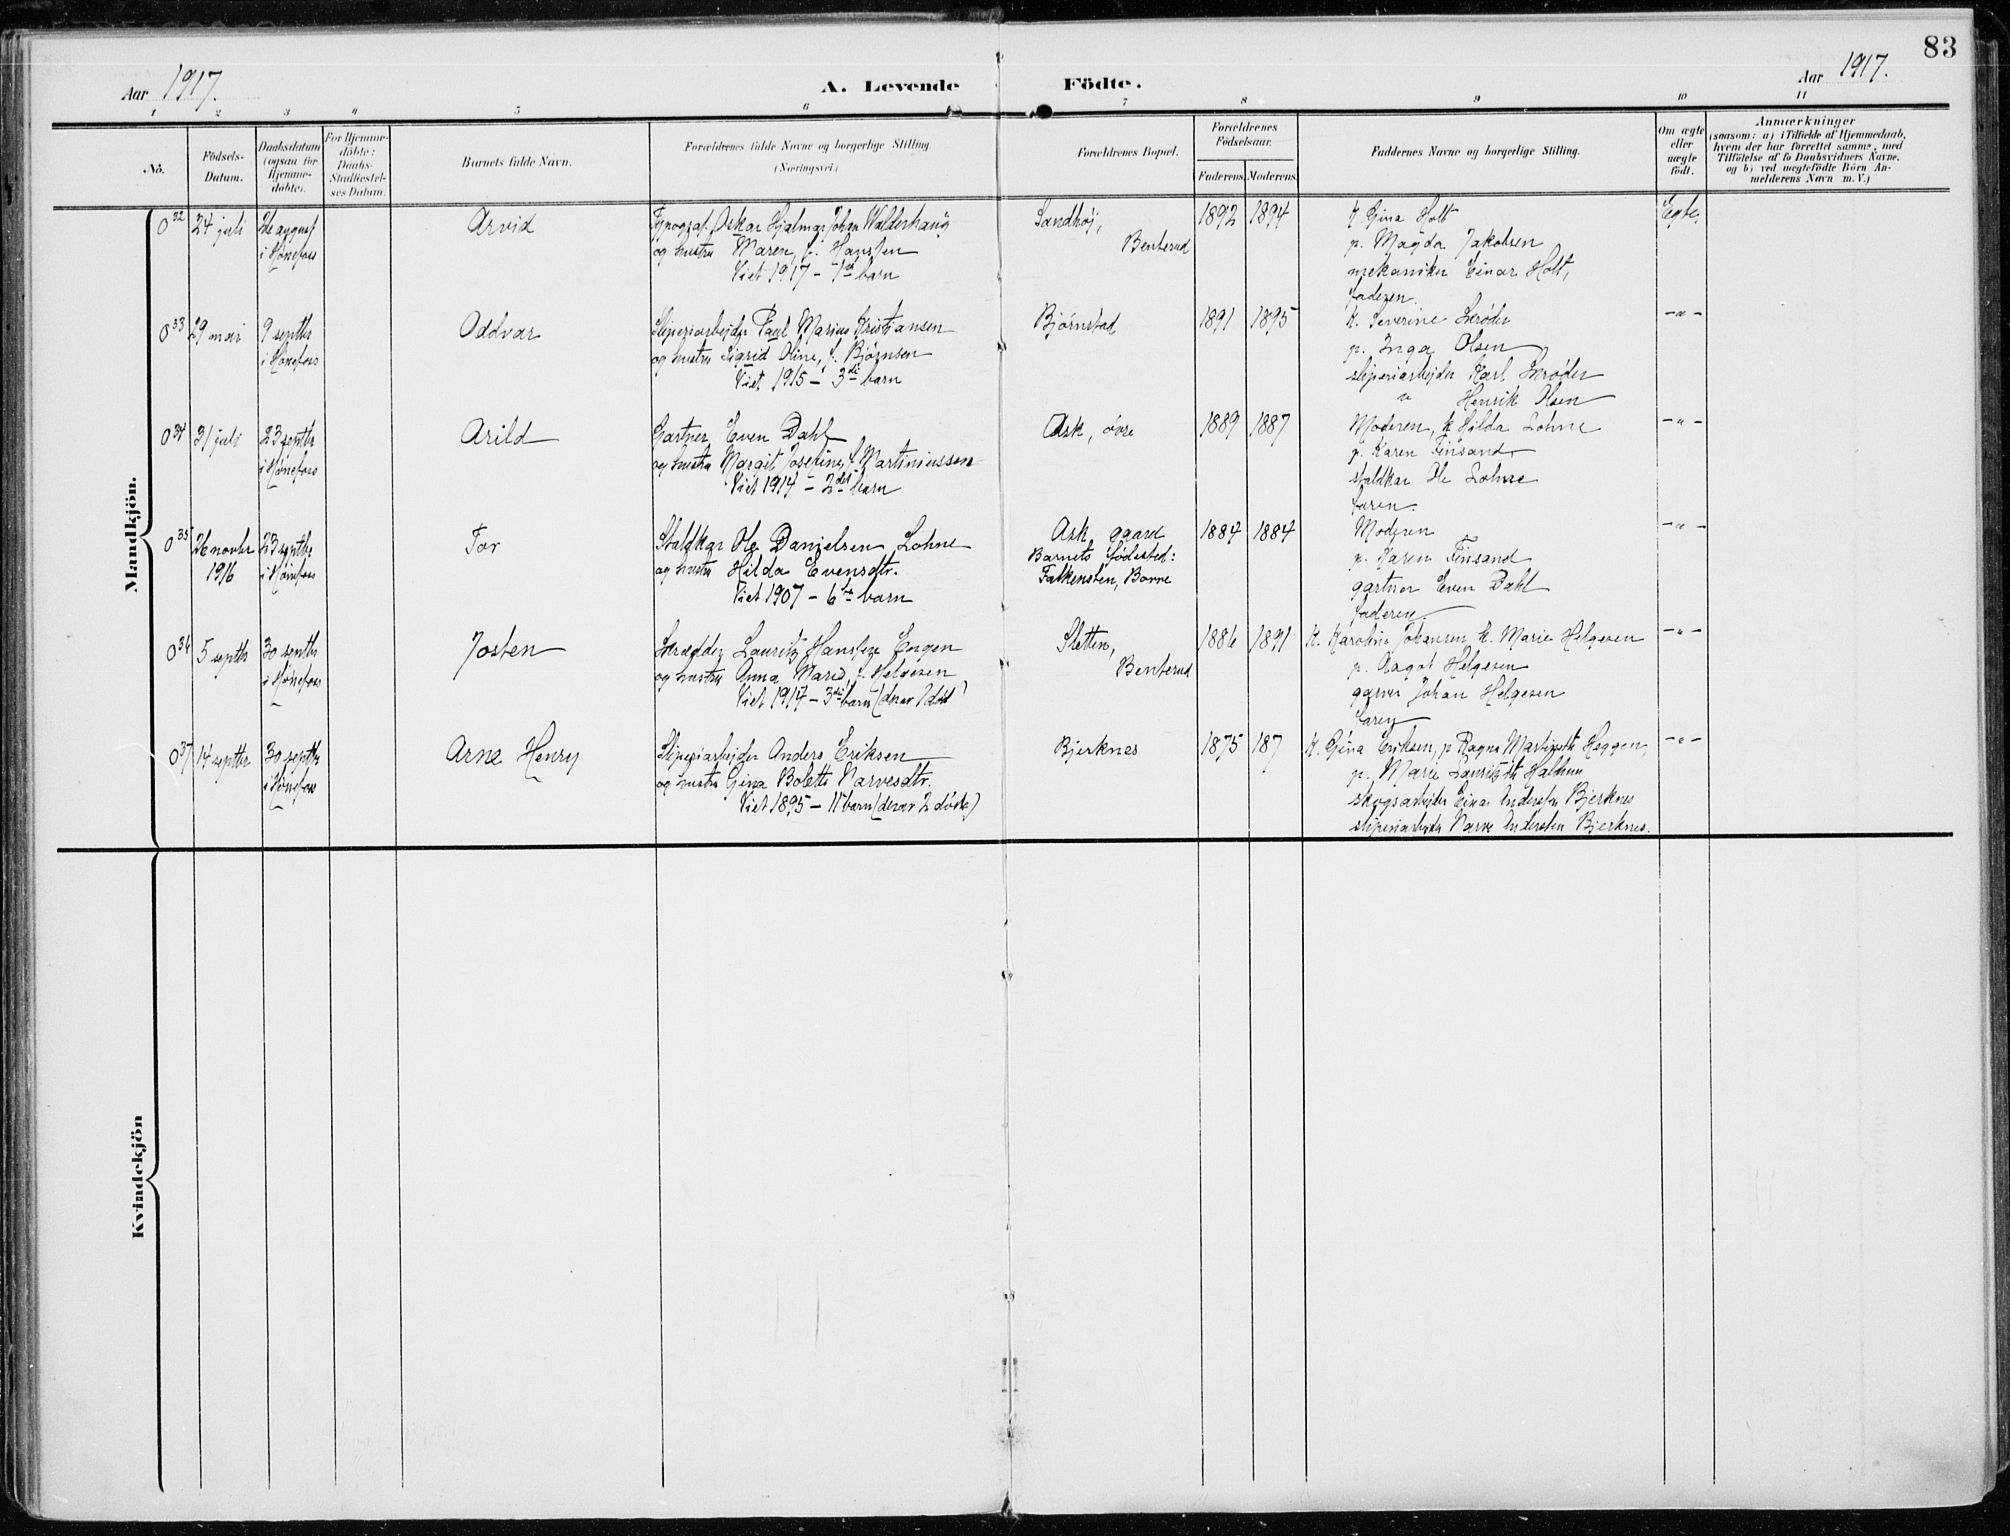 83
Aar 1917.
A. Levende Födte.
Aar 1917.
1 2 3 4 5 6 7 8 9 10 11
No.
Födsels-Datum.
Daabsdatum (ogsaa for Hjemmedöbte).
For Hjemmedöbte: Daabs-Stadfæstelses Datum.
Barnets fulde Navn.
Forældrenes fulde Navne og borgerlige Stilling.
(Næringsvei)
Forældrenes Bopæl.
Forældrenes Födselsaar.
Faderens. Moderens.
Faddernes Navne og borgerlige Stilling.
Om ægte eller uægte födt.
Anmærkninger
(saasom: a) i Tilfælde af Hjemmedaab,
hvem der har forrettet samme, med
Tilföielse af to Daabsvidners Navne,
og b) ved uægtefödte Börn An-
melderens Navn m. V.)
Mandkjön.
0 32 24 juli
26 august
i Hønefoss
Arvid
Typograf Oskar Hjalmar Johan Walderhaug
og hustru Maren, f. Hanssen
Viet 1917 - 1ste barn
Sandhøj,
Benterud
1892 1894
K Gina Holt
p. Magda Jakobsen
mekaniker Einar Holt,
faderen.
Egte.
0 33 29 mai
9 septbr
i Hønefoss
Oddvar
Sliperiarbejder Paul Marius Kristiansen
og hustru Sigrid Oline, f. Bjørnsen
Viet 1915 - 3die barn
Bjørnstad
1891 1895
K. Severine Skrøder
p. Inga Olsen
sliperiarbejder Karl Skrøder
" Henrik Olsen
-"-
0 34 31 juli
23 septbr
i Hønefoss
Arild
Gartner Even Dahl
og hustru Margit Josefine, f. Martiniussen
Viet 1914 - 2det barn
Ask, øvre
1889 1887
Moderen, k Hilda Lohne
p. Karen Finsand
staldkar Ole Lohne
faren.
-"-
0 35 26 novbr
1916
23 septbr
i Hønefoss
Tor
Staldkar Ole Danielsen Lohne
og hustru Hilda Evensdtr.
Viet 1907 - 6te barn
Ask gaard
Barnets fødested:
Falkensten, Borre
1884 1884
Moderen
p. Karen Finsand
gartner Even Dahl
faderen
-"-
0 36 5 septbr
30 septbr
i Hønefoss
Josten
Skrædder Lauritz Hanssen Engen
og hustru Anna Marie, f. Helgesen
Viet 1917 - 3die barn (derav 1 død)
Sletten,
Benterud
1886 1891
K. Karoline Johansen k. Marie Helgesen
p. Aagot Helgesen
garver Johan Helgesen
faren
-"-
0 37 14 septbr
30 septbr
i Hønefoss
Arne Henry
Sliperiarbejder Anders Eriksen
og hustru Gina Bolette Narvesdtr.
Viet 1895 - 11 barn (derav 2 døde)
Bjerknes
1875 187
K. Gina Eriksen, p Ragna Martinsdtr Heggen,
p. Marie Lauritzdtr Halhum
skogsarbejder Einar Anderssen Bjerknes
sliperiarbejder Narve Anderssen Bjerknes.
-"-
Kvindekjön